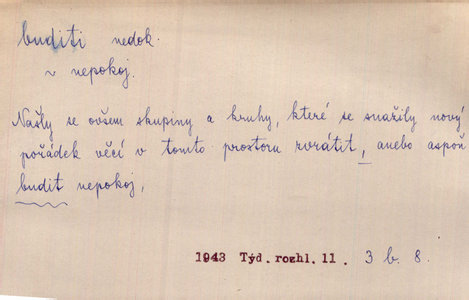 buditi nedok.
v nepokoj.
Našly se ovšem skupiny a kruhy, které se snažily nový
pořádek věcí v tomto prostoru zvrátit, anebo aspoň
budit nepokoj,
1943 Týd. rozhl. 11. 3 b. 8.